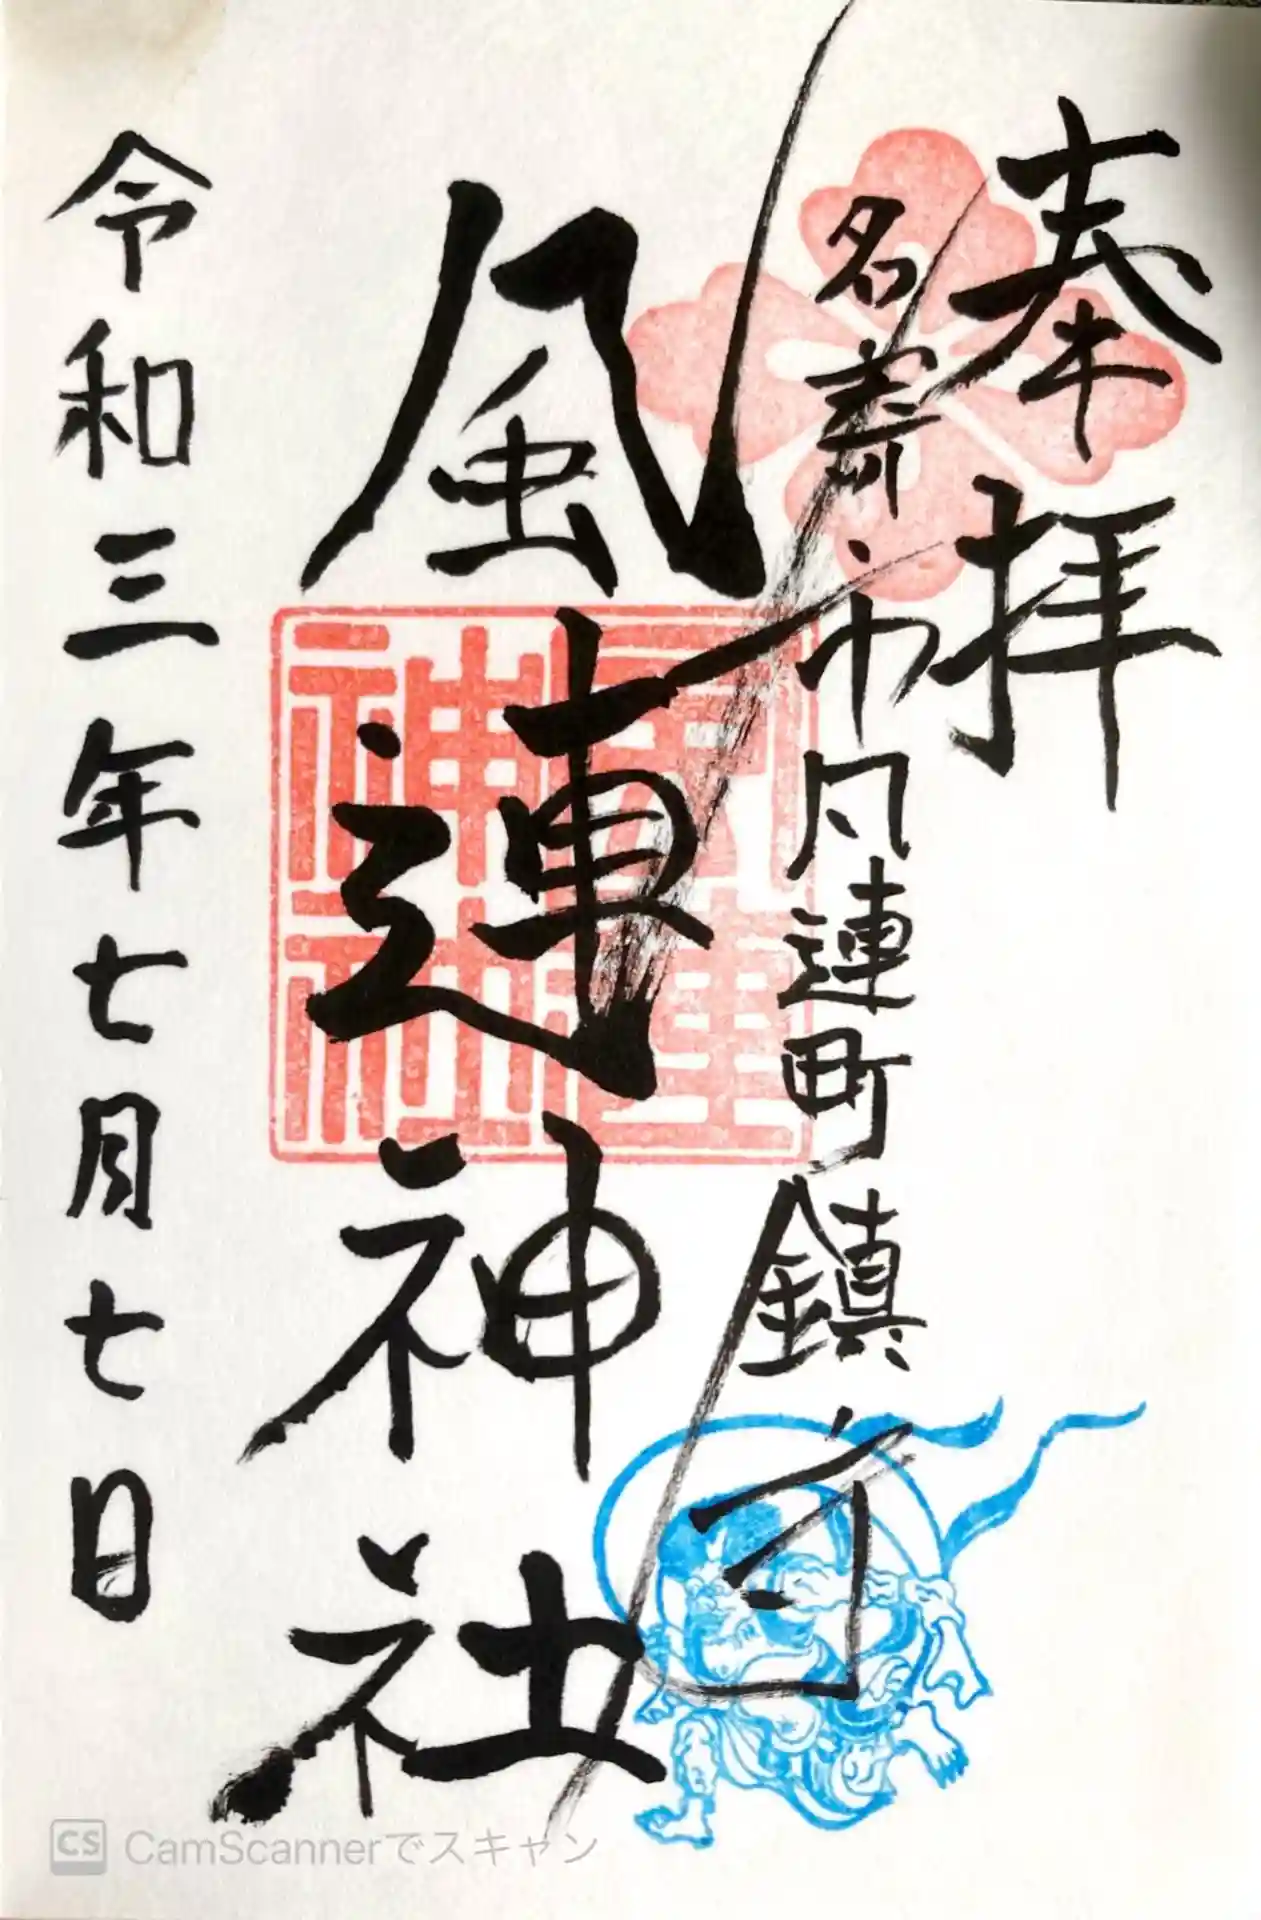 奉拝
名寄市風連町鎮守
風連神社
風連神社
令和三年七月七日
CS CamScannerでスキャン